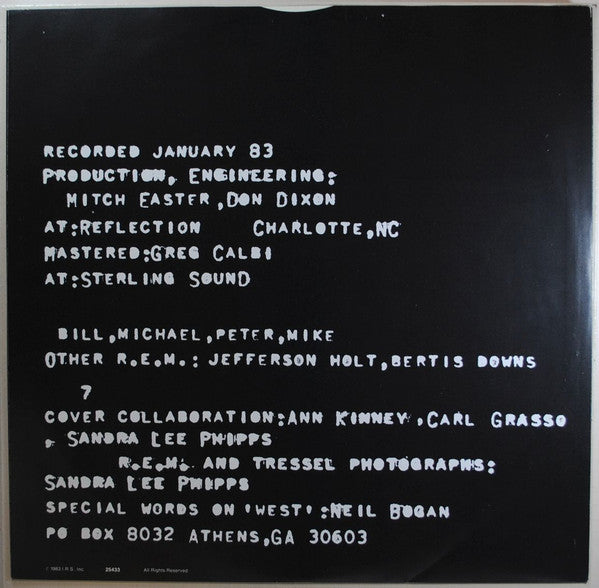 RECORDED JANUARY 83
PRODUCTION, ENGINEERING:
MITCH EASTER, DON DIXON
AT:REFLECTION CHARLOTTE, NC
MASTERED:GREG CALBI
AT:STERLING SOUND
BILL, MICHAEL, PETER, MIKE
OTHER R.E.M.: JEFFERSON HOLT, BERTIS DOWNS
7
COVER COLLABORATION:ANN KINNEY, CARL GRASSO
, SANDRA LEE PHIPPS
R.E.M. AND TRESSEL PHOTOGRAPHS:
SANDRA LEE PHIPPS
SPECIAL WORDS ON 'WEST':NEIL BOGAN
PO BOX 8032 ATHENS, GA 30603
1983 I.R.S., Inc. 25433 All Rights Reserved